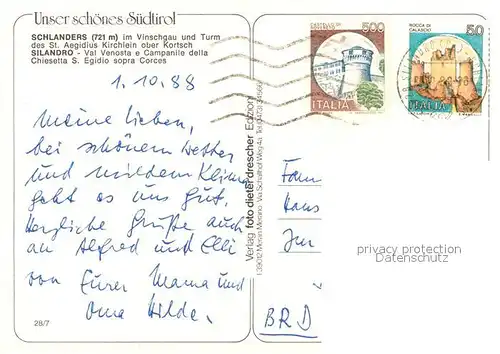 Unser schönes Südtirol
SCHLANDERS (721 m) im Vinschgau und Turm
des St. Aegidius Kirchlein ober Kortsch
SILANDRO - Val Venosta e Campanile della
Chiesetta S. Egidio sopra Corces
1.10.88
Meine Lieben,
bei schönem Wetter
und mildem Klima
geht es uns gut.
Herzliche Grüße auch
an Alfred und Elli
von Eurer Mama und
Oma Hilde.
28/7
Verlag foto dieter drescher Edizioni
I 39012 Meran Merano
500
ITALIA
ROCCA DI
CALASCIO
50
ITALIA
Fam
Hans
BRD
privacy protection
Datenschutz